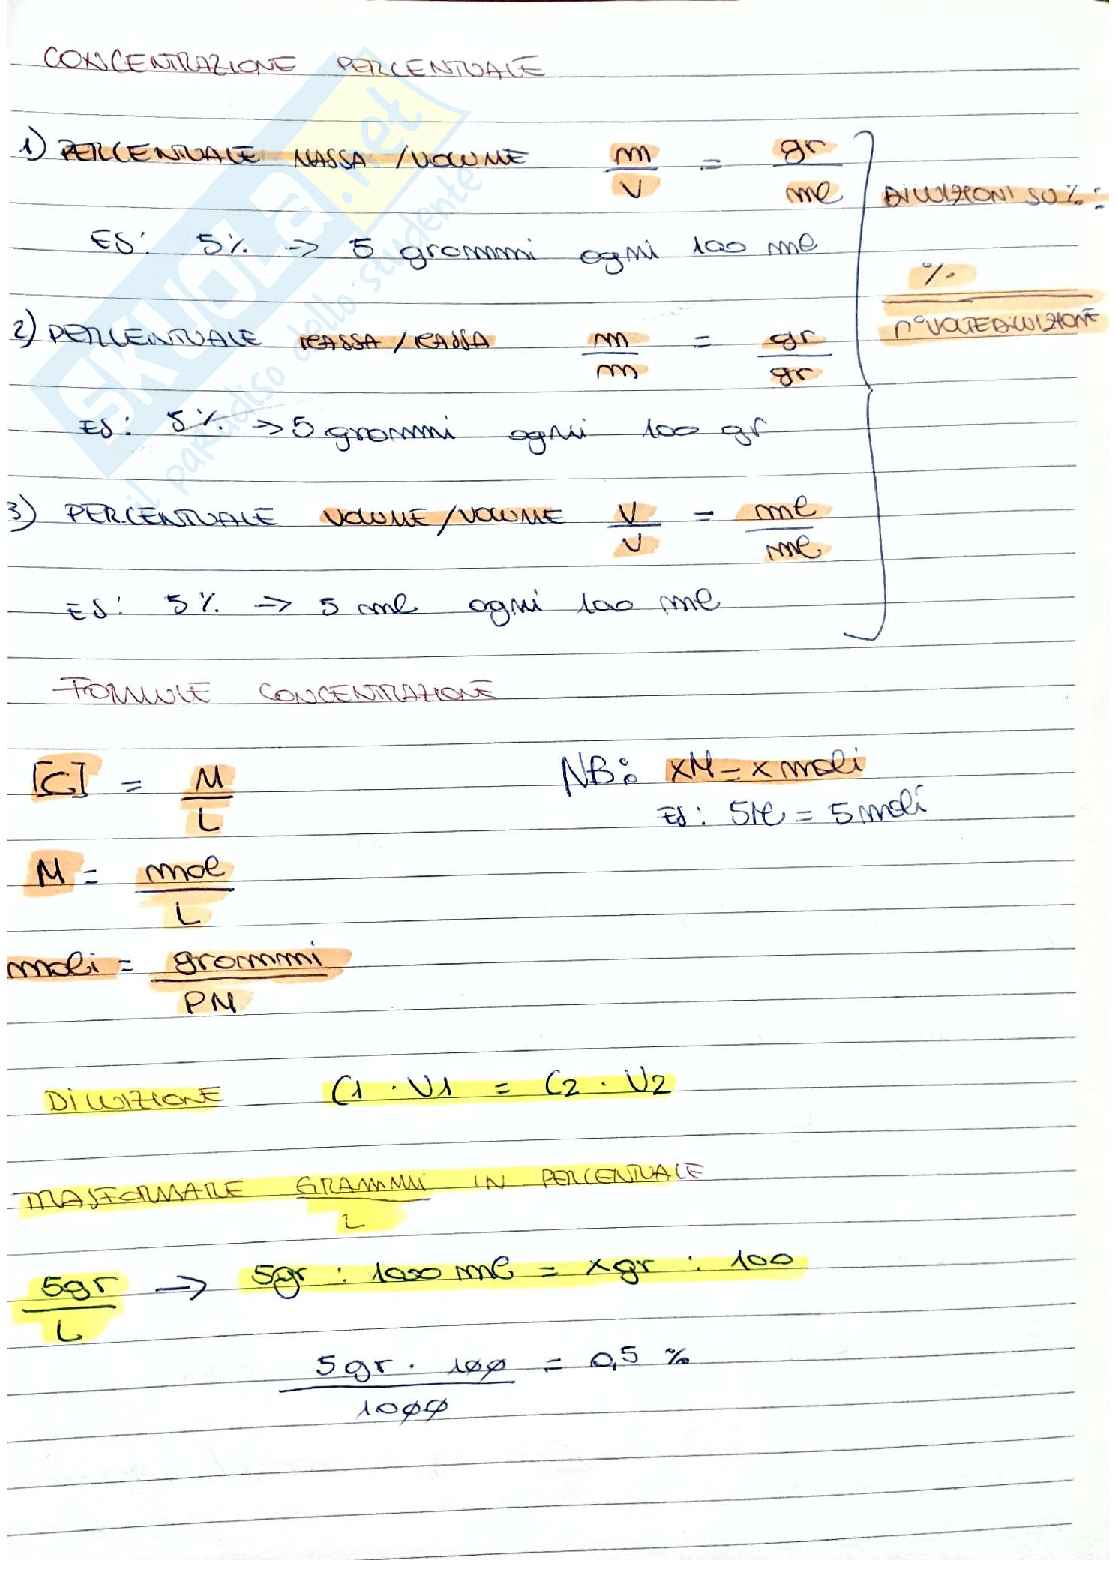 CONCENTRAZIONE PERCENTUALE
1) PERCENTUALE MASSA/VOLUME m/V = gr/ml
DILUIZIONI SU %:
ES: 5% → 5 grammi ogni 100 ml
%/n° VOLTE DILUIZIONE
2) PERCENTUALE MASSA/MASSA m/m = gr/gr
ES: 5% → 5 grammi ogni 100 gr
3) PERCENTUALE VOLUME/VOLUME V/V = ml/ml
ES: 5% → 5 ml ogni 100 ml
FORMULE CONCENTRAZIONE
[C] = M/L
NB: XM = X moli
ES: 5M = 5 moli
M = mol/L
moli = grammi/PM
DILUIZIONE C1 · V1 = C2 · V2
TRASFORMARE GRAMMI/L IN PERCENTUALE
5gr/L → 5gr : 1000 ml = x gr : 100
5gr · 100/1000 = 0,5 %
SKUOLA.net
il paradiso dello studente